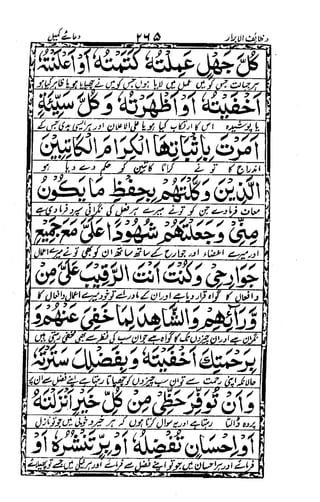 دعائے کمیل ۲۶۵ وظائف الابرار
كُلَّ جَهْلٍ عَمِلْتُهٗ كَتَمْتُهٗ اَوْ اَعْلَنْتُهٗ
ہر جہالت جس کو میں عمل میں لایا ہوں جس کو میں نے چھپایا ہو یا ظاہر کیا ہو
اَخْفَيْتُهٗ اَوْ اَظْهَرْتُهٗ وَ كُلَّ سَيِّئَةٍ
یا پوشیدہ اس کا ارتکاب کیا ہو یا علی الاعلان اور ہر ایسی بدی جس کے
اَمَرْتَ بِاِثْبَاتِهَا الْكِرَامَ الْكَاتِبِيْنَ
اندراج کا تو نے کراما کاتبین کو حکم دے دیا ہو
الَّذِيْنَ وَكَّلْتَهُمْ بِحِفْظِ مَا يَكُوْنُ
معاف فرمادے جن کو تو نے میرے ہر فعل کی نگرانی سپرد فرمائی ہے
مِنِّيْ وَ جَعَلْتَهُمْ شُهُوْدًا عَلَيَّ مَعَ جَمِيْعِ
اور میرے اعضاء اور جوارح کے ساتھ ساتھ ان کو بھی تو نے میرے اعمال
جَوَارِحِيْ وَ كُنْتَ اَنْتَ الرَّقِيْبَ عَلَيَّ مِنْ
و افعال کا گواہ قرار دیا ہے اور ان کے ماوراء تو خود میرے اعمال و افعال کا
وَرَآئِهِمْ وَ الشَّاهِدَ لِمَا خَفِيَ عَنْهُمْ وَ
نگران ہے اور ان چیزوں تک کا گواہ ہے جو ان سب کی نظر سے بھی مخفی رہتی ہیں
بِرَحْمَتِكَ اَخْفَيْتَهٗ وَ بِفَضْلِكَ سَتَرْتَهٗ
حالانکہ اپنی رحمت سے تو ان سب چیزوں کو چھپاتا رہتا ہے اور اپنے فضل سے ان پر
وَ اَنْ تُوَفِّرَ حَظِّيْ مِنْ كُلِّ خَيْرٍ اَنْزَلْتَهٗ
پردہ ڈالتا رہتا ہے اور یہ سوال کرتا ہوں کہ ہر خیر و خوبی میں جو تو نازل
اَوْ اِحْسَانٍ تُفْضِلُهٗ اَوْ بِرٍّ تَنْشُرُهٗ اَوْ
فرمائے اور ہر احسان میں جو تو اپنے فضل سے فرمائے اور ہر نیکی میں جسے تو پھیلائے